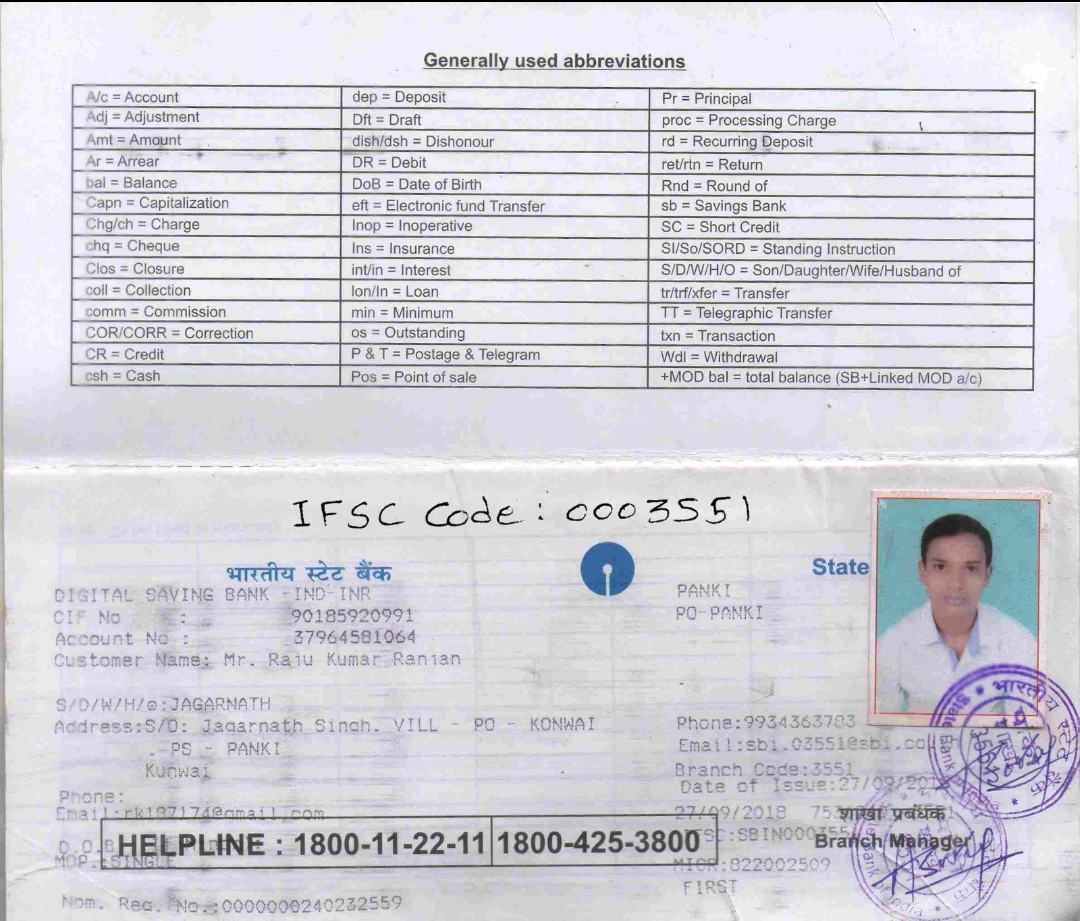 Generally used abbreviations
A/c = Account
Adj = Adjustment
Amt = Amount
Ar = Arrear
bal = Balance
Capn = Capitalization
Chg/ch = Charge
chq = Cheque
Clos = Closure
coll = Collection
comm = Commission
COR/CORR = Correction
CR = Credit
csh = Cash
dep = Deposit
Dft = Draft
dish/dsh = Dishonour
DR = Debit
DoB = Date of Birth
eft = Electronic fund Transfer
Inop = Inoperative
Ins = Insurance
int/in = Interest
lon/ln = Loan
min = Minimum
os = Outstanding
P & T = Postage & Telegram
Pos = Point of sale
Pr = Principal
proc = Processing Charge
rd = Recurring Deposit
ret/rtn = Return
Rnd = Round of
sb = Savings Bank
SC = Short Credit
SI/So/SORD = Standing Instruction
S/D/W/H/O = Son/Daughter/Wife/Husband of
tr/trf/xfer = Transfer
TT = Telegraphic Transfer
txn = Transaction
Wdl = Withdrawal
+MOD bal = total balance (SB+Linked MOD a/c)
IFSC Code : 0003551
भारतीय स्टेट बैंक
State
DIGITAL SAVING BANK -IND-INR
CIF No : 90185920991
Account No : 37964581064
Customer Name: Mr. Raju Kumar Ranjan
S/D/W/H/o:JAGARNATH
Address:S/O: Jagarnath Singh. VILL - PO - KONWAI
.-PS - PANKI
Kunwai
Phone:
Email:rk187174@gmail.com
D.O.B
MOP.:SINGLE
Nom. Reg. No.:0000000240232559
PANKI
PO-PANKI
Phone:9934363783
Email:sbi.03551@sbi.co
Branch Code:3551
Date of Issue:27/09/201
27/09/2018
IFSC:SBIN000355
MICR:822002509
FIRST
HELPLINE : 1800-11-22-11 1800-425-3800
शाखा प्रबंधक
Branch Manager